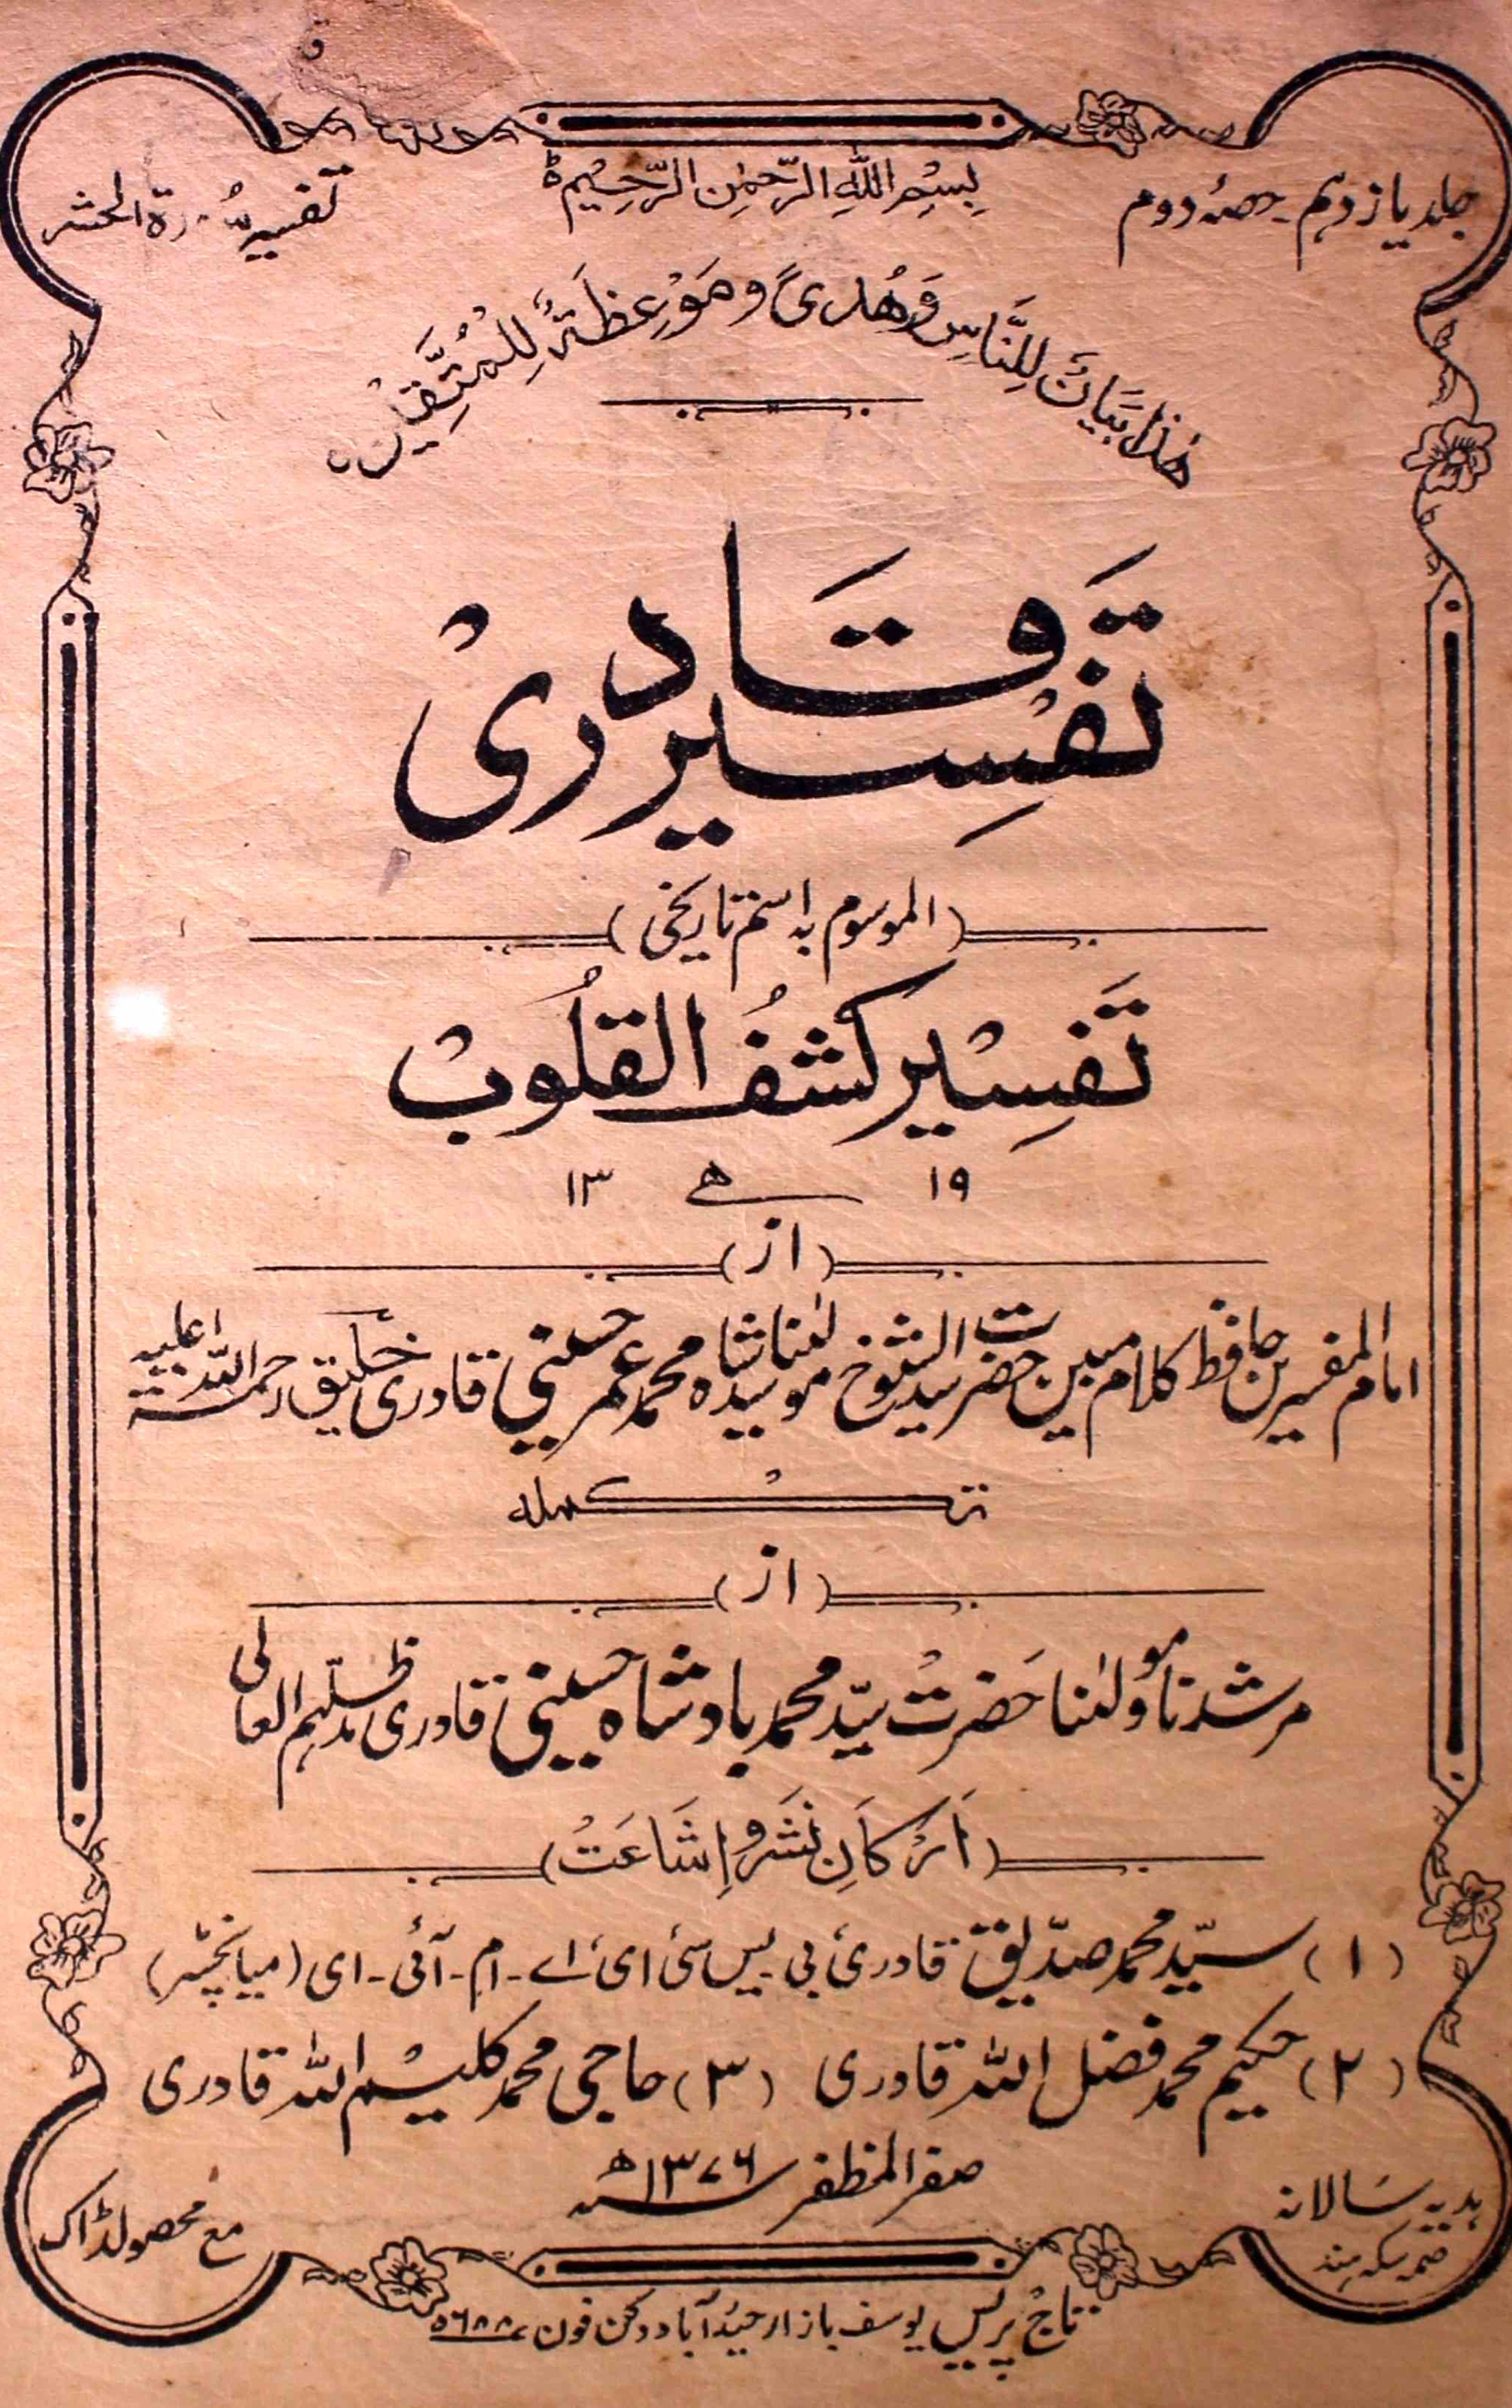 جلد یازدہم۔ حصۂ دوم
بِسْمِ اللّٰہِ الرَّحْمٰنِ الرَّحِیْمِ ؕ
تفسیر سُورۃ الحشر
ھٰذَا بَیَانٌ لِلنَّاسِ وَھُدًی وَمَوْعِظَۃٌ لِلْمُتَّقِیْنَ ہ
تَفْسِیْر قَادرِیْ
(الموسوم بہ اسم تاریخی)
تَفْسِیْر کَشْفُ الْقُلُوْبْ
۱۹ ھ ۱۳
(از)
امام المفسرین حافظ کلام مبین حضرت سید الشیوخ مولٰنا سید شاہ محمد عمر حسینی قادری خلیق رحمۃ اللہ علیہ
تکملہ
(از)
مرشدنا و مولٰنا حضرت سیّد محمد بادشاہ حسینی قادری مدظلہم العالی
(اَرْکَانِ نَشْر و اِشَاعَتْ)
(۱) سیّد محمد صدّیق قادریٔ بی یس سی ای اے۔ ام۔ آئی۔ ای (میانچسٹر)
(۲) حکیم محمد فضل اللہ قادری (۳) حاجی محمد کلیم اللہ قادری
صفر المظفر سنہ ۱۳۷۶ھ
ہدیہ سالانہ
سکہ ہند
مع محصولڈاک
تاج پریس یوسف بازار حیدرآباد دکن فون ۵۶۸۸